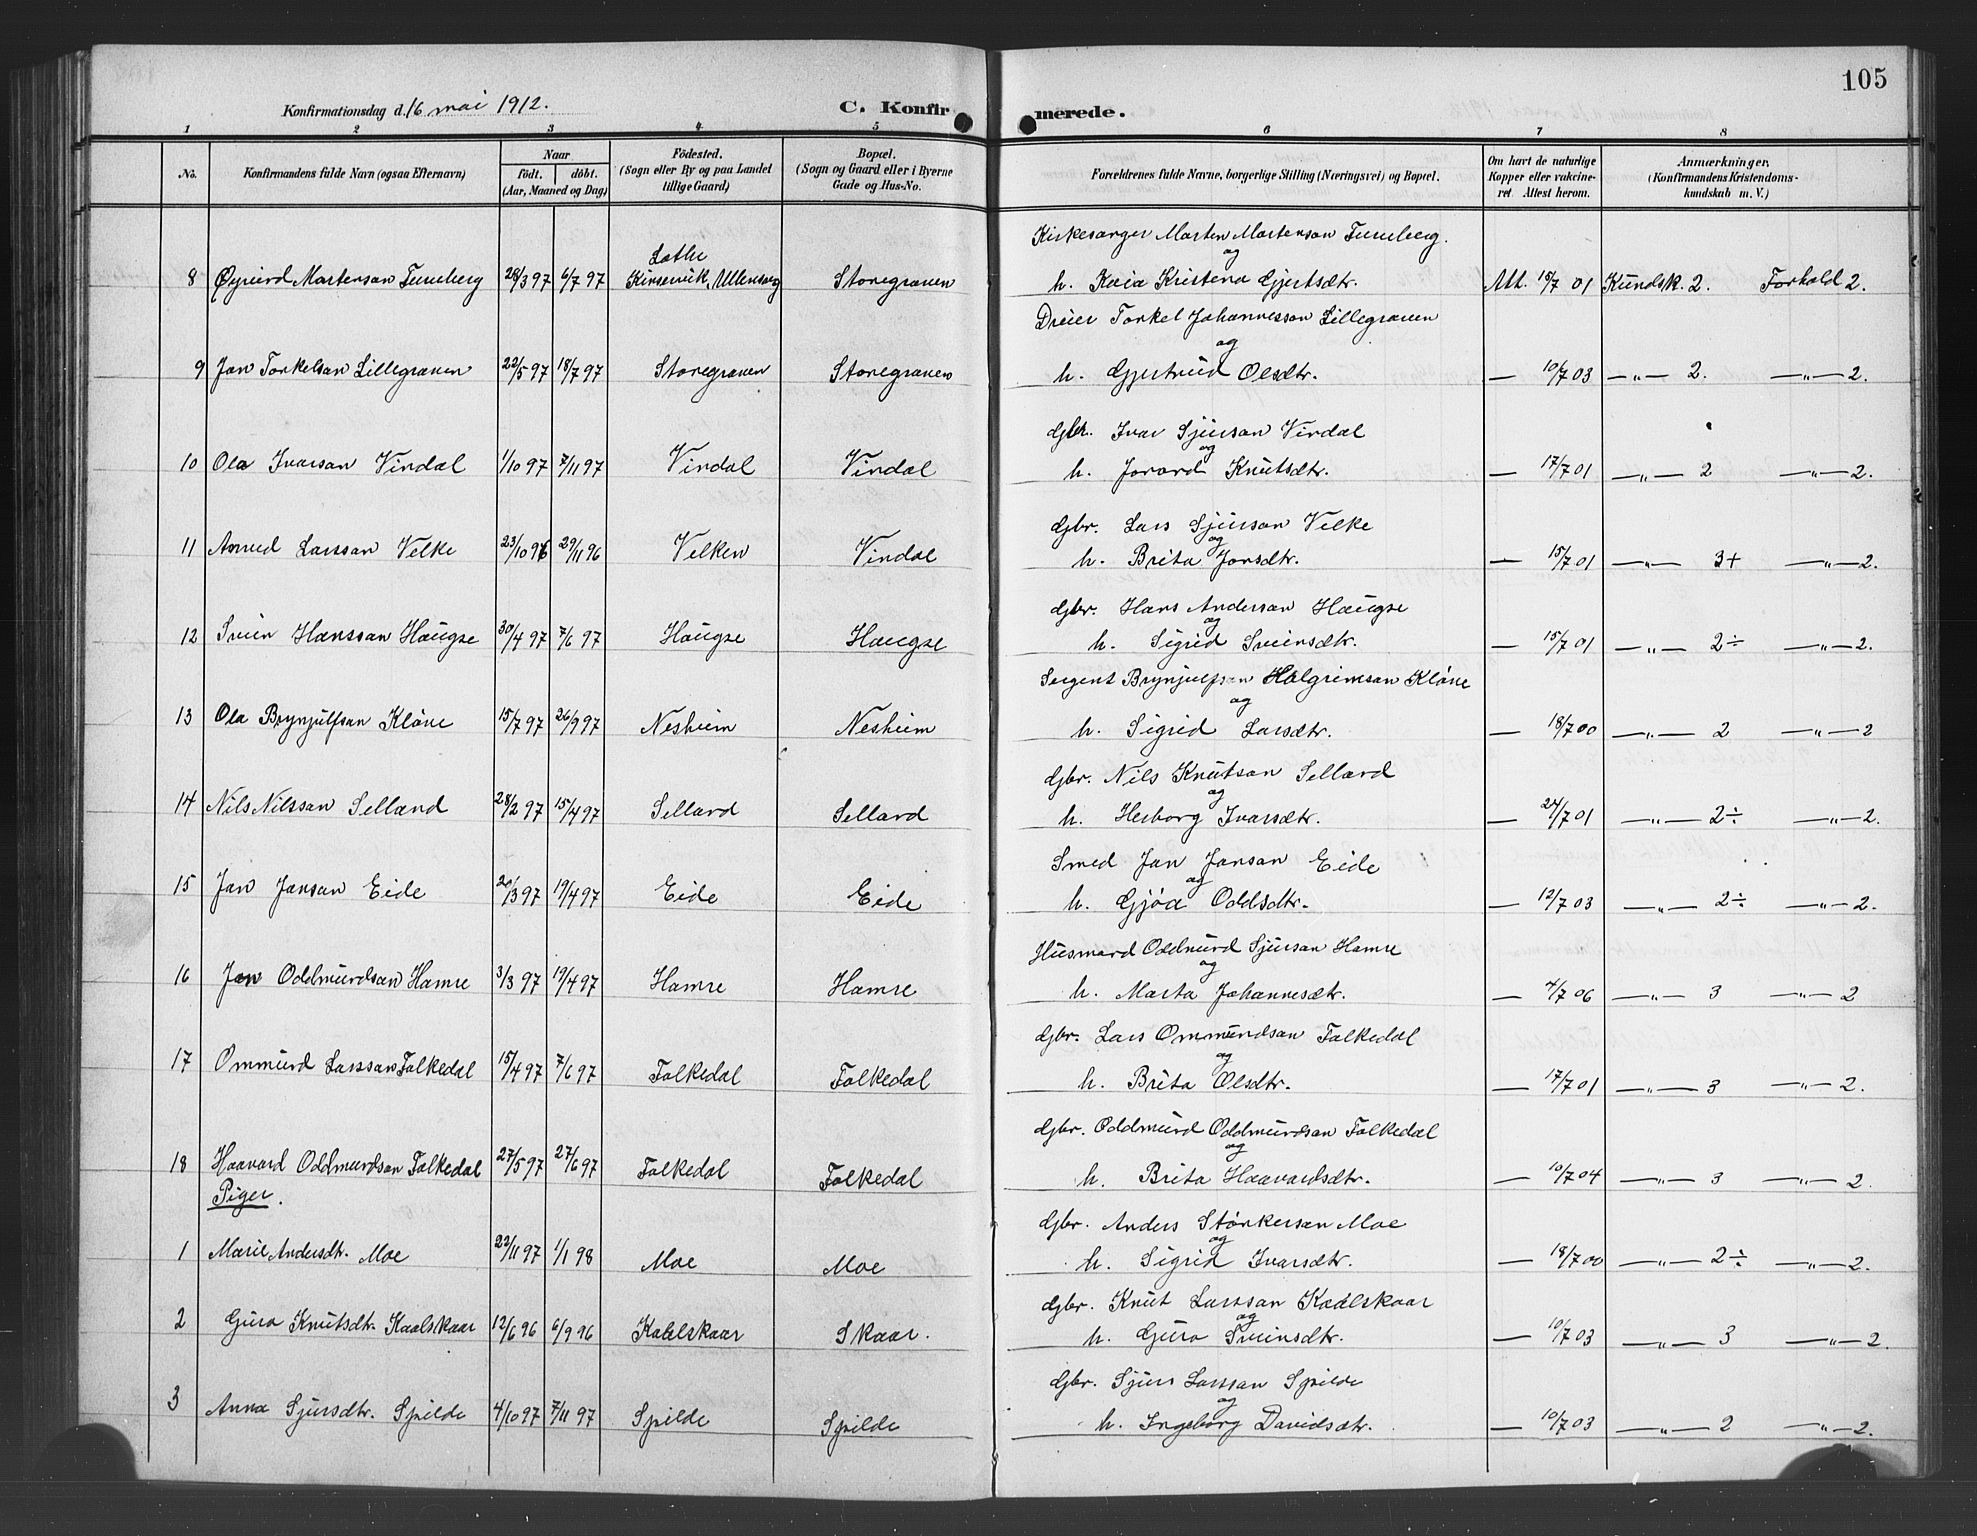 105
Konfirmationsdag d. 16 mai 1912. C. Konfirmerede.
1 2 3 4 5 6 7 8
No. Konfirmandens fulde Navn (ogsaa Efternavn) Naar født. døbt. (Aar, Maaned og Dag) Fødested. (Sogn eller By og paa Landet tillige Gaard) Bopæl. (Sogn og Gaard eller i Byerne Gade og Hus-No. Forældrenes fulde Navne, borgerlige Stilling (Næringsvei) og Bopæl. Om havt de naturlige Kopper eller vaccineret. Attest herom. Anmærkninger, (Konfirmandens Kristendomskundskab m. V.)
Kirkesanger Marten Martenson Tuneberg.
og
8 Øyvind Martensan Tuneberg 28/3 97 6/7 97 Lothe Kinservik, Ullensvang Storegraven h. Kaia Kristena Gjertsdtr. Att. 15/7 01 Kundsk. 2. Forhold 2.
Dreier Torkel Johannesson Lillegraven
og
9 Jon Torkelsan Lillegraven 22/5 97 18/7 97 Storegraven Storegraven h. Gjertrud Olsdtr. — 10/7 03 —„— 2. —„— 2.
Gbr. Ivar Sjursan Vindal
og
10 Ola Ivarsan Vindal 1/10 97 7/11 97 Vindal Vindal h. Jorand Knutsdtr. — 17/7 01 —„— 2 —„— 2.
Gbr. Lars Sjursan Velke
og
11 Larssan Velke 23/10 96 29/11 96 Velken Vindal h. Brita Jonsdtr. — 15/7 01 —„— 3+ —„— 2.
Gbr. Hans Andersan Haugse
og
12 Svein Hanssan Haugse 30/4 97 7/6 97 Haugse Haugse h. Sigrid Sveinsdtr. — 15/7 01 —„— 2÷ —„— 2.
Sergent Brynjulfsan Halgrimsan Kløve
og
13 Ola Brynjulfsan Kløve 15/7 97 26/9 97 Nesheim Nesheim h. Sigrid Larsdtr. — 18/7 00 —„— 2 —„— 2
Gbr. Nils Knutsan Selland
og
14 Nils Nilssan Selland 28/2 97 15/4 97 Selland Selland h. Herborg Ivarsdtr. — 24/7 01 —„— 2÷ —„— 2.
Smed Jan Jansan Eide
og
15 Jan Jansan Eide 20/3 97 19/4 97 Eide Eide h. Gjøa Oddsdtr. — 12/7 03 —„— 2÷ —„— 2.
Husmand Oddmund Sjursan Hamre
og
16 Jon Oddmundsan Hamre 3/3 97 19/4 97 Hamre Hamre h. Marta Johannesdtr. — 4/7 06 —„— 3 —„— 2
Gbr. Lars Ommundsan Folkedal
og
17 Ommund Larssan Folkedal 15/4 97 7/6 97 Folkedal Folkedal h. Brita Olsdtr. — 17/7 01 —„— 3 —„— 2.
Gbr. Oddmund Oddmundsan Folkedal
og
18 Haavard Oddmundsan Folkedal 27/5 97 27/6 97 Folkedal Folkedal h. Brita Haavardsdtr. — 10/7 04 —„— 3 —„— 2.
Piger.
Gbr. Anders Størkersan Moe
og
1 Marie Andersdtr. Moe 22/11 97 1/1 98 Moe Moe h. Sigrid Ivarsdtr. — 18/7 00 —„— 2÷ —„— 2.
Gbr. Knut Larssan Kaalskaar
og
2 Guro Knutsdtr. Kaalskaar 12/6 96 6/9 96 Kaalskaar Skaar. h. Guro Sveinsdtr. — 10/7 03 —„— 3 —„— 2.
Gbr. Sjur Larssan Spilde
og
3 Anna Sjursdtr. Spilde 4/10 97 7/11 97 Spilde Spilde h. Ingeborg Davidsdtr. — 10/7 03 —„— 2 —„— 2.